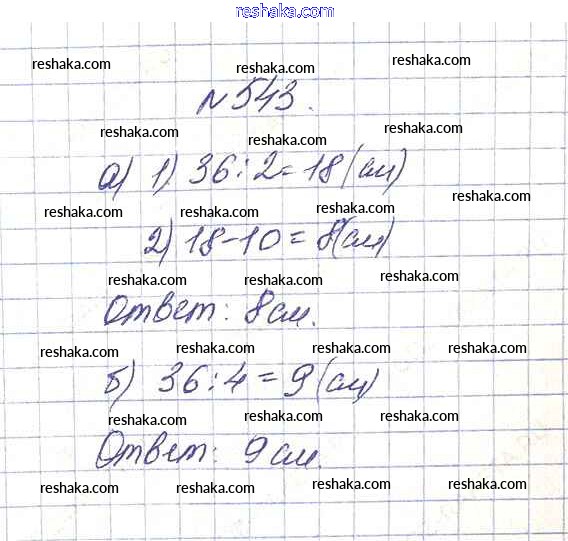 reshaka.com
reshaka.com reshaka.com reshaka.com
№ 543.
reshaka.com reshaka.com reshaka.com
а) 1) 36 : 2 = 18 (см)
reshaka.com reshaka.com reshaka.com reshaka.com
2) 18 - 10 = 8 (см)
reshaka.com reshaka.com reshaka.com
Ответ: 8 см.
reshaka.com reshaka.com reshaka.com reshaka.com
б) 36 : 4 = 9 (см)
reshaka.com reshaka.com reshaka.com
Ответ: 9 см.
reshaka.com reshaka.com reshaka.com reshaka.com